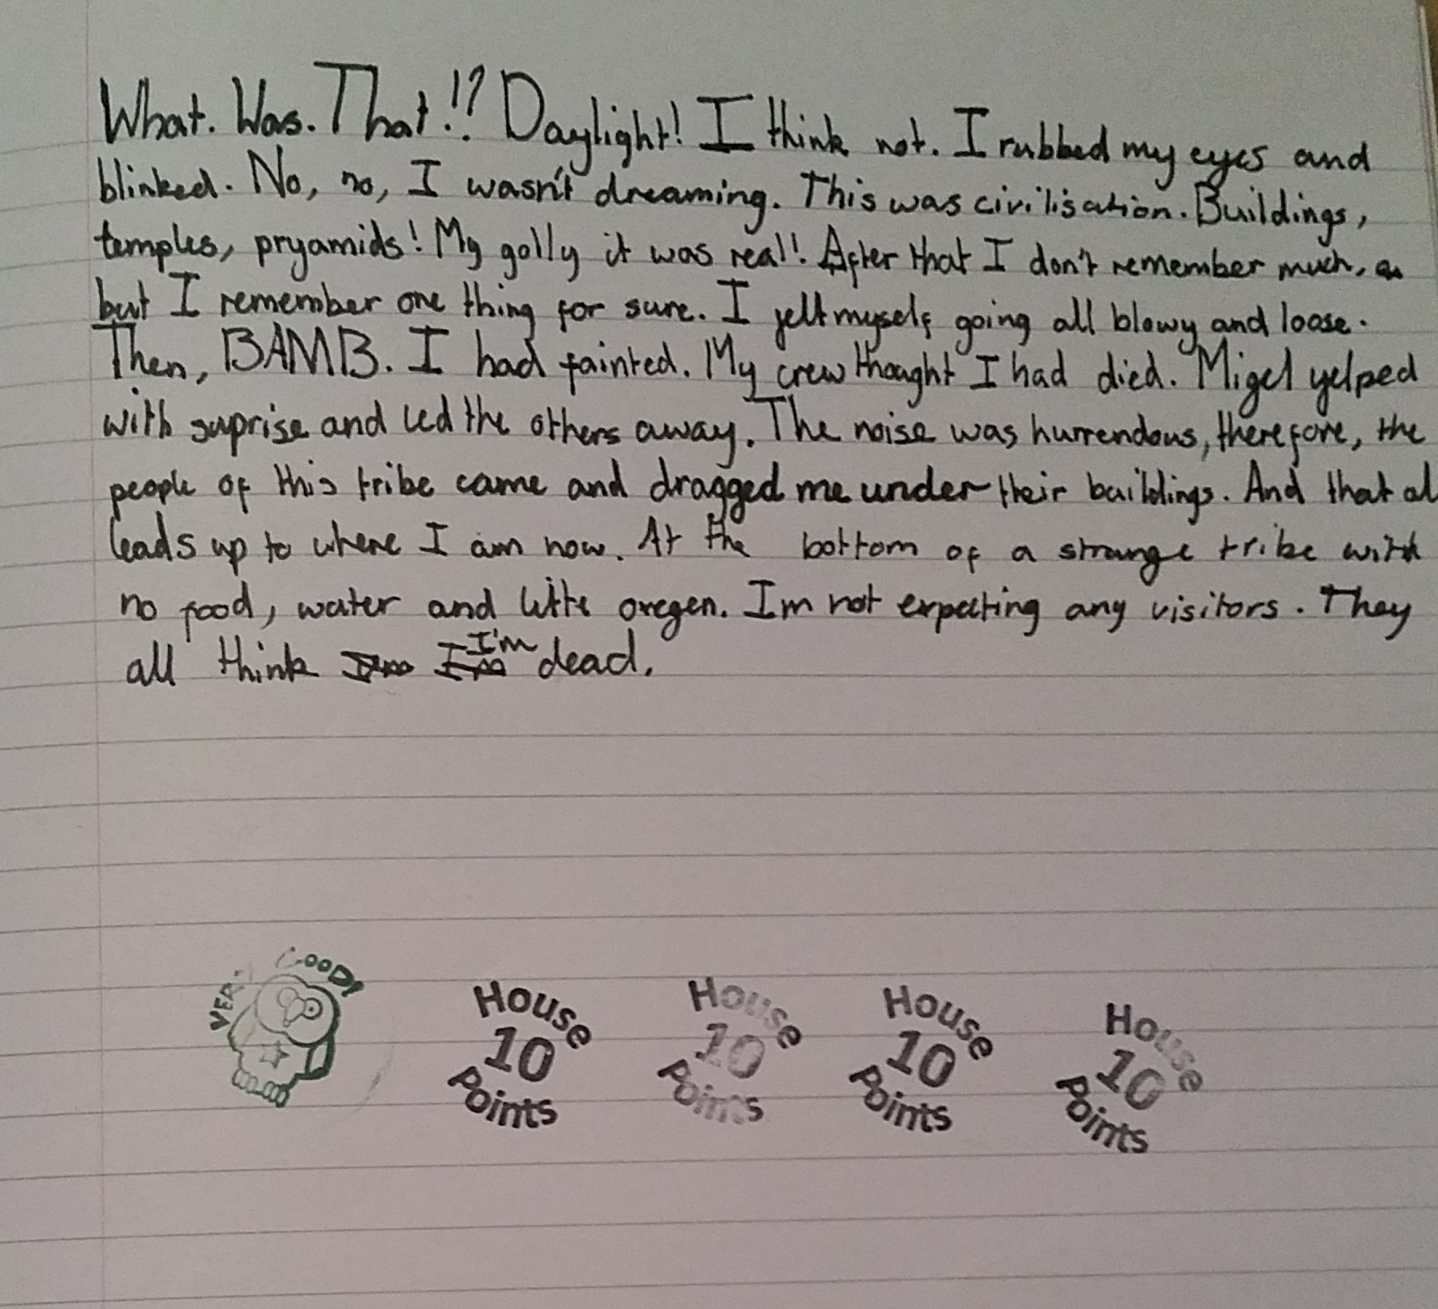 What. Was. That!? Daylight! I think not. I rubbed my eyes and
blinked. No, no, I wasn't dreaming. This was civilisation. Buildings,
temples, pryamids! My golly it was real! After that I don't remember much, a
but I remember one thing for sure. I felt myself going all blowy and loose.
Then, BAMB. I had fainted. My crew thought I had died. Migel yelped
with suprise and led the others away. The noise was hurrendous, therefore, the
people of this tribe came and dragged me under their buildings. And that al
leads up to where I am now. At the bottom of a strange tribe with
no food, water and litte oxegen. Im not expecting any visitors. They
all think I'm dead.
VERY GOOD!
House 10 Points
House 10 Points
House 10 Points
House 10 Points